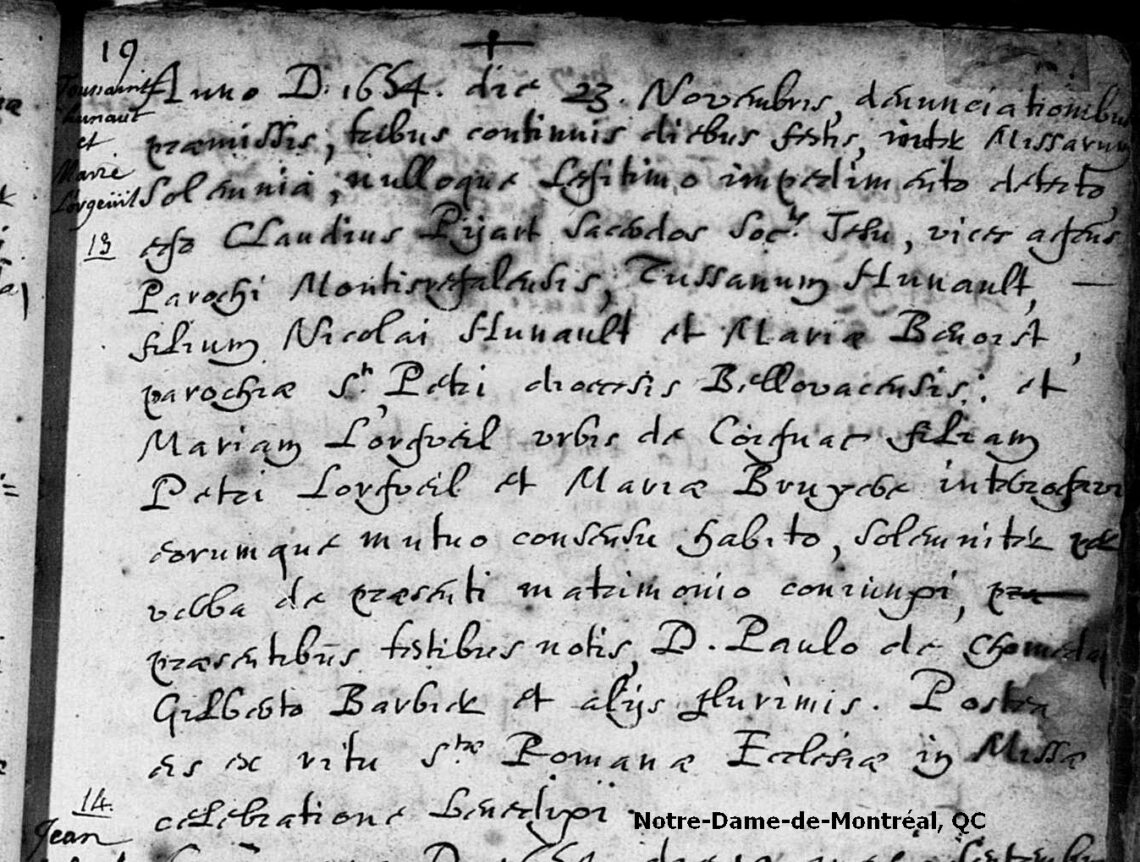 19
Toussaint
hunault
et
Marie
Lorgeuil
13
Anno D. 1654. die 23. Novembris, denunciationibus
præmissis, tribus continuis diebus festis, inter Missarum
Solemnia, nulloque Legitimo impedimento detecto,
ego Claudius Pijart Sacerdos Soc.tis Jesu, vices agens
Parochi Montisregalensis, Tussanum Hunault, —
filium Nicolai Hunault et Mariæ Benoist,
parochiæ Sti Petri diœcesis Bellovacensis: et
Mariam Lorgveil urbis de Coignac filiam
Petri Lorgveil et Mariæ Bruyere interrogavi
eorumque mutuo consensu habito, solemniter per
verba de præsenti matrimonio coniunxi, præ
præsentibus testibus notis, D. Paulo de Chomedey
Gilberto Barbier et alijs plurimis. Postea
eis ex ritu Stæ Romanæ Ecclesiæ in Missæ
celebratione benedixi.
Notre-Dame-de-Montréal, QC
14
Jean